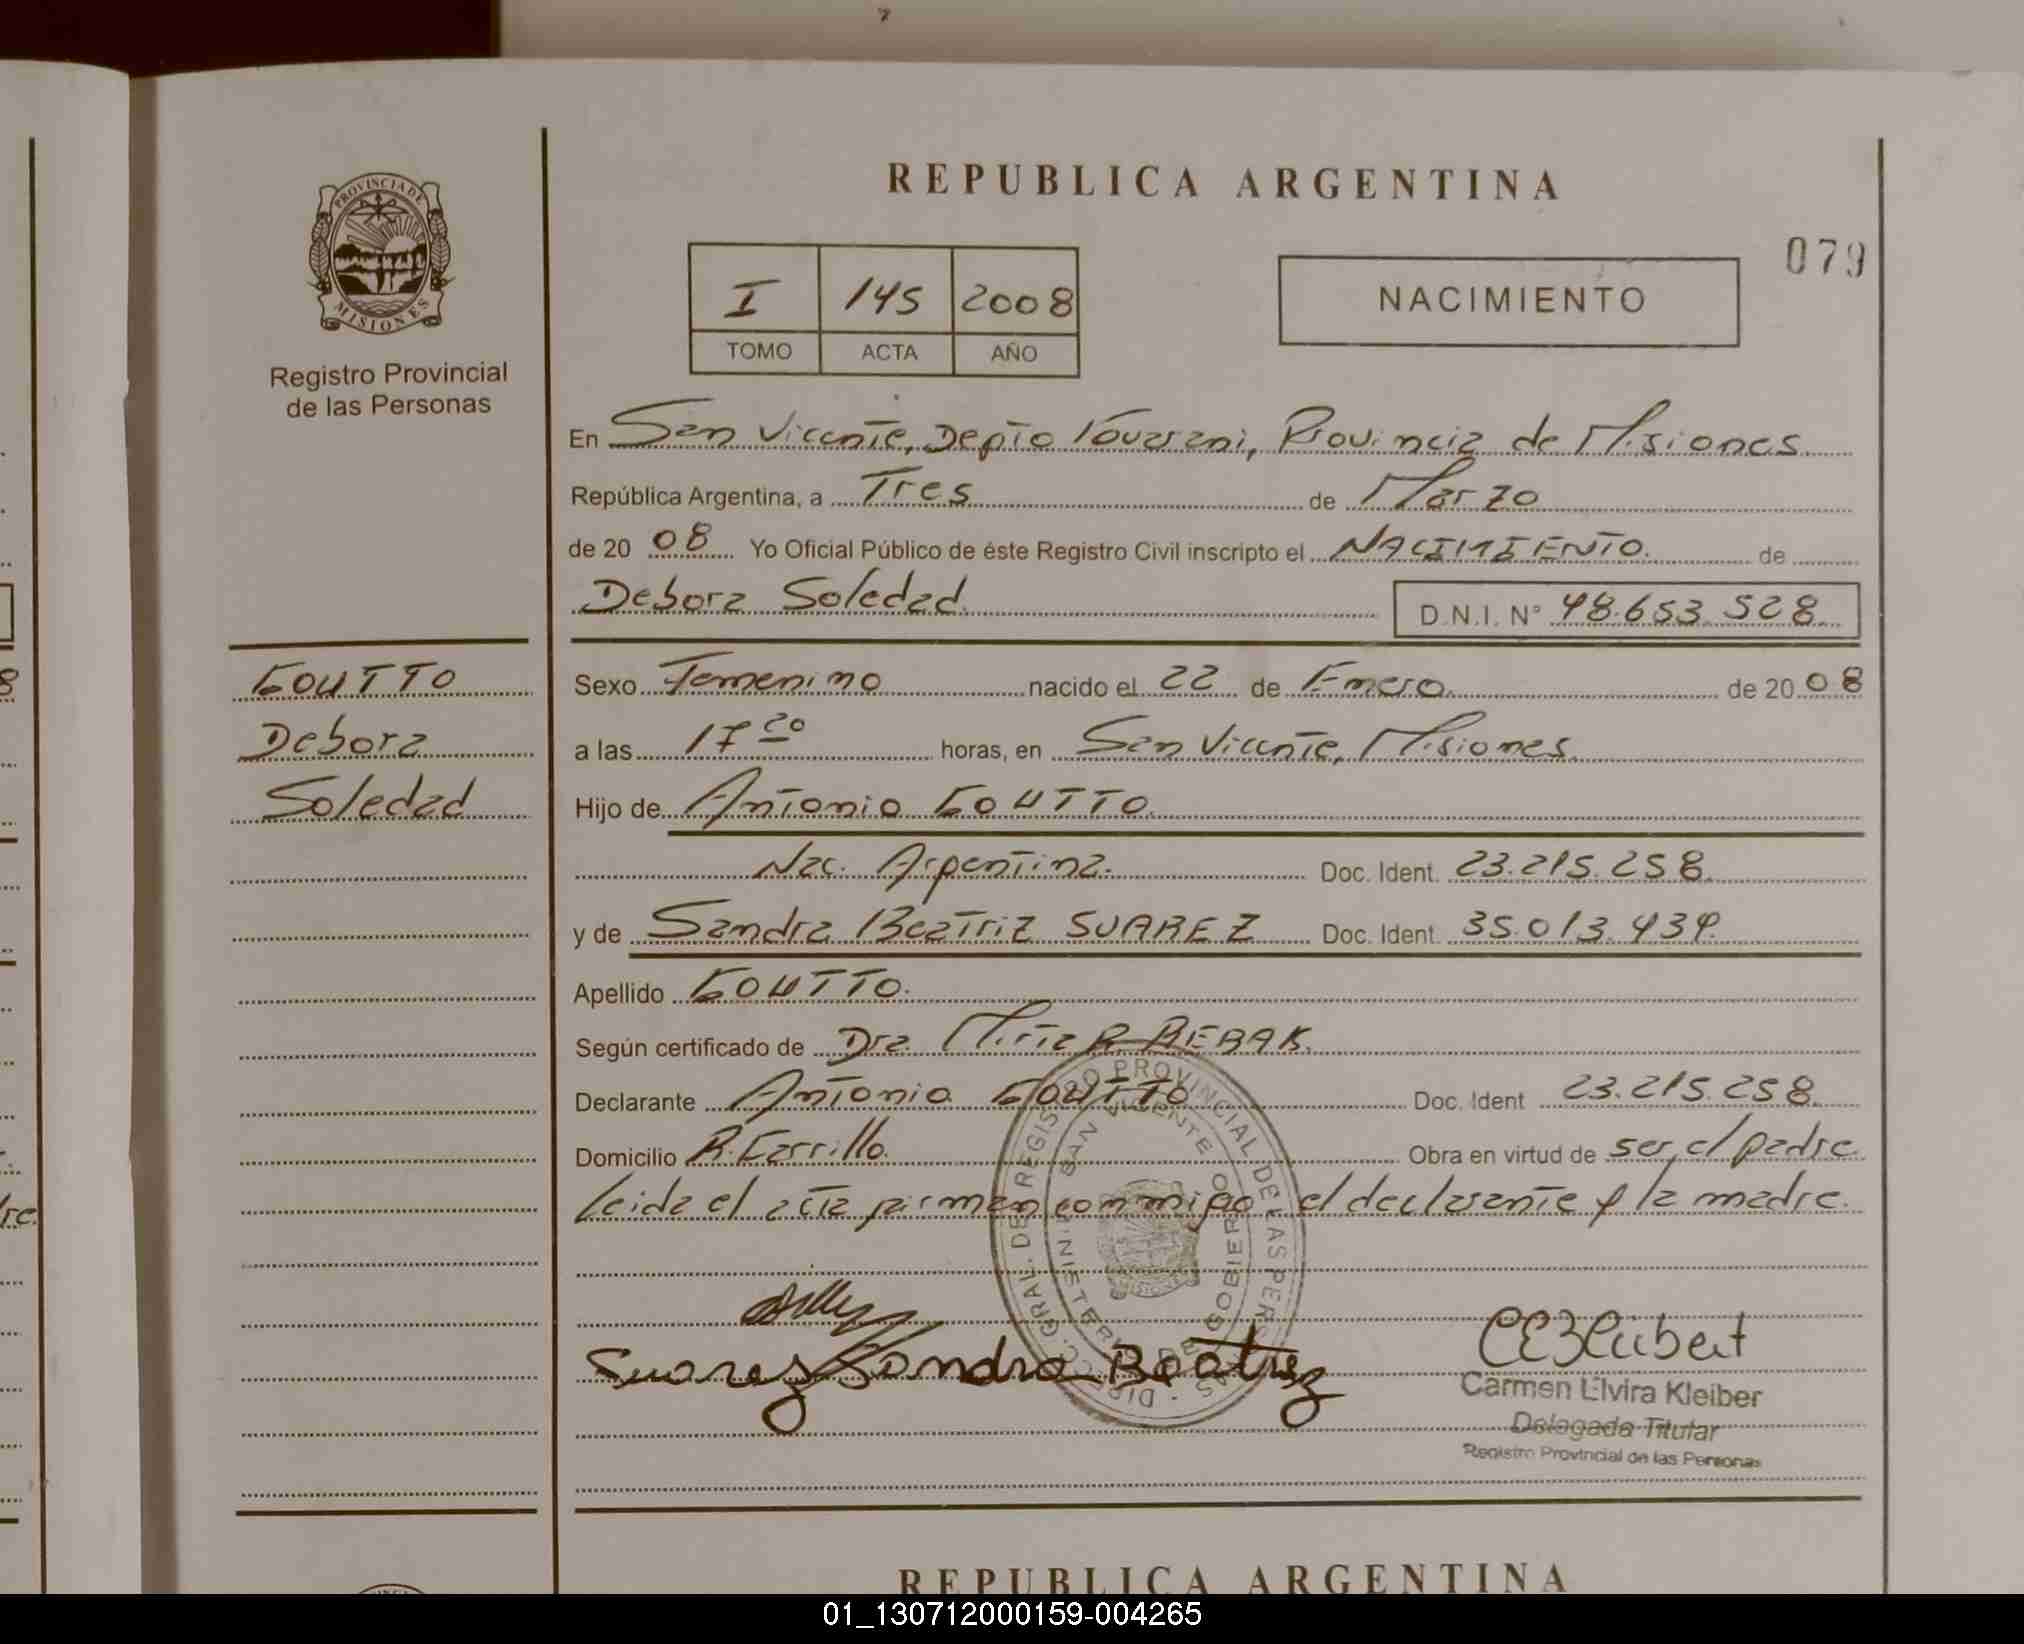 PROVINCIA DE
MISIONES
Registro Provincial
de las Personas
REPUBLICA ARGENTINA
079
I 145 2008
TOMO ACTA AÑO
NACIMIENTO
En San Vicente, Depto Guarani, Provincia de Misiones
República Argentina, a Tres de Marzo
de 20 08 Yo Oficial Público de éste Registro Civil inscripto el NACIMIENTO de
Debora Soledad D.N.I. N° 48.653.528
GOUTTO
Debora
Soledad
Sexo Femenino nacido el 22 de Enero de 20 08
a las 17 20 horas, en San Vicente, Misiones
Hijo de Antonio GOUTTO
Nac. Argentina. Doc. Ident. 23.215.258
y de Sandra Beatriz SUAREZ Doc. Ident. 35.013.434
Apellido GOUTTO.
Según certificado de Dra.
Declarante Antonio GOUTTO Doc. Ident 23.215.258
Domicilio R. Carrillo. Obra en virtud de ser el padre
leida el acta firman conmigo el declarante y la madre.
DIRECC. GRAL. DE REGISTRO PROVINCIAL DE LAS PERSONAS
SAN VICENTE
MINISTERIO DE GOBIERNO
Suarez Sandra Beatriz
CEKleiber
Carmen Elvira Kleiber
Delegada Titular
Registro Provincial de las Personas
REPUBLICA ARGENTINA
01_130712000159-004265